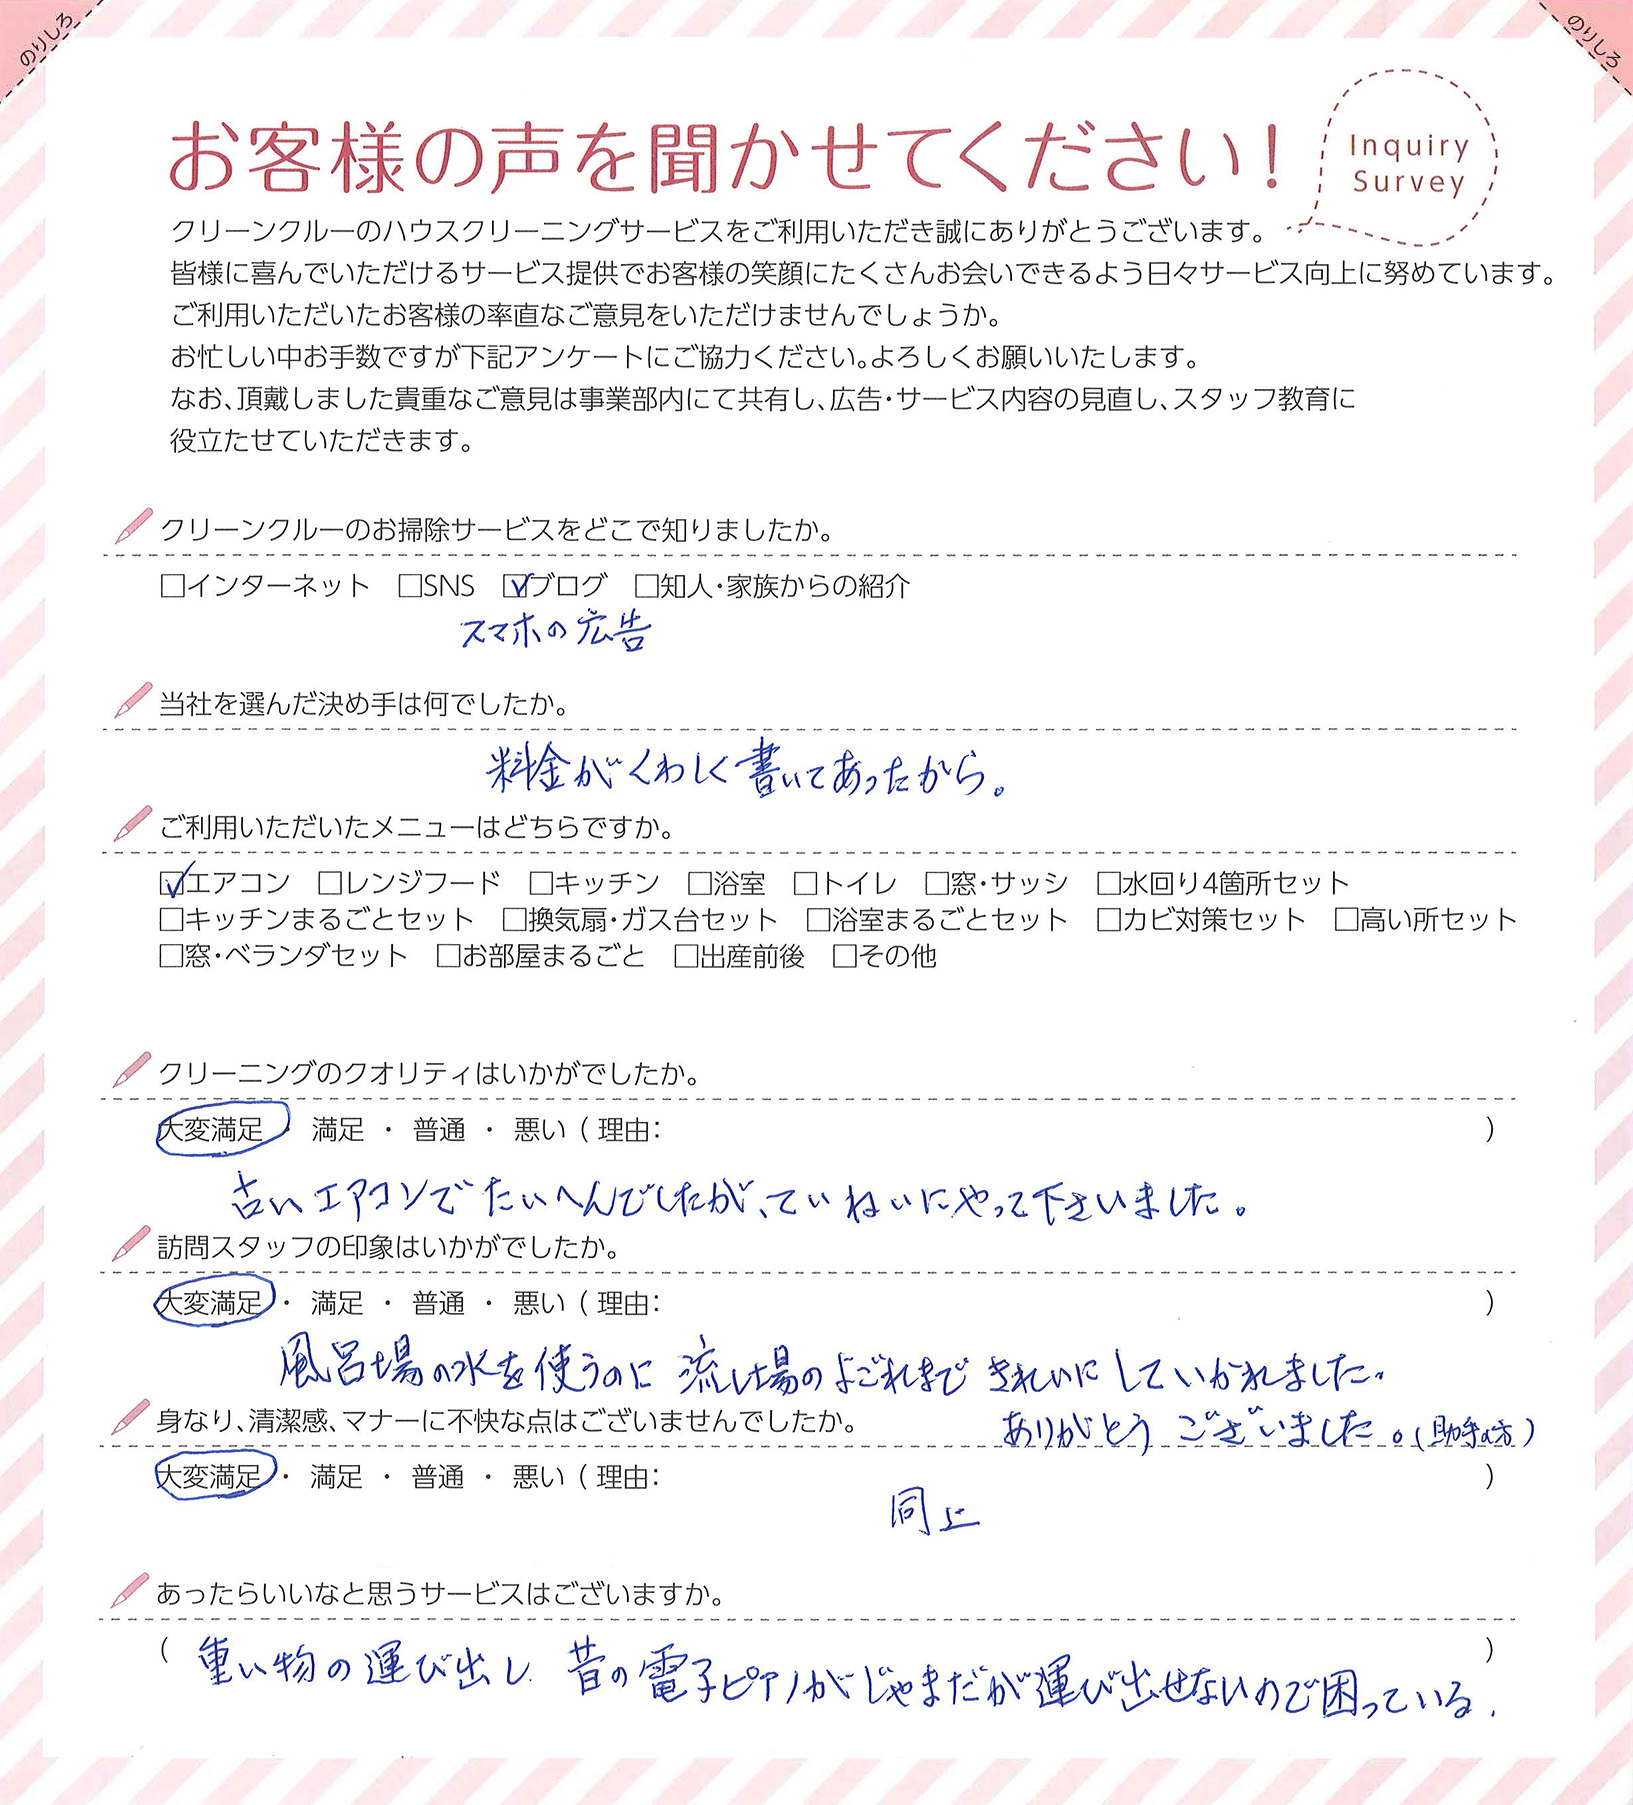 のりしろ
のりしろ
お客様の声を聞かせてください！
Inquiry
Survey
クリーンクルーのハウスクリーニングサービスをご利用いただき誠にありがとうございます。
皆様に喜んでいただけるサービス提供でお客様の笑顔にたくさんお会いできるよう日々サービス向上に努めています。
ご利用いただいたお客様の率直なご意見をいただけませんでしょうか。
お忙しい中お手数ですが下記アンケートにご協力ください。よろしくお願いいたします。
なお、頂戴しました貴重なご意見は事業部内にて共有し、広告・サービス内容の見直し、スタッフ教育に
役立たせていただきます。
クリーンクルーのお掃除サービスをどこで知りましたか。
□インターネット □SNS ☑ブログ □知人・家族からの紹介
スマホの広告
当社を選んだ決め手は何でしたか。
料金がくわしく書いてあったから。
ご利用いただいたメニューはどちらですか。
☑エアコン □レンジフード □キッチン □浴室 □トイレ □窓・サッシ □水回り4箇所セット
□キッチンまるごとセット □換気扇・ガス台セット □浴室まるごとセット □カビ対策セット □高い所セット
□窓・ベランダセット □お部屋まるごと □出産前後 □その他
クリーニングのクオリティはいかがでしたか。
大変満足 ・ 満足 ・ 普通 ・ 悪い（理由： ）
古いエアコンでたいへんでしたが、ていねいにやって下さいました。
訪問スタッフの印象はいかがでしたか。
大変満足 ・ 満足 ・ 普通 ・ 悪い（理由： ）
風呂場の水を使うのに流し場のよごれまできれいにしていかれました。
身なり、清潔感、マナーに不快な点はございませんでしたか。
ありがとうございました。（助手の方）
大変満足 ・ 満足 ・ 普通 ・ 悪い（理由： ）
同上
あったらいいなと思うサービスはございますか。
（重い物の運び出し. 昔の電子ピアノがじゃまだが運び出せないので困っている. ）